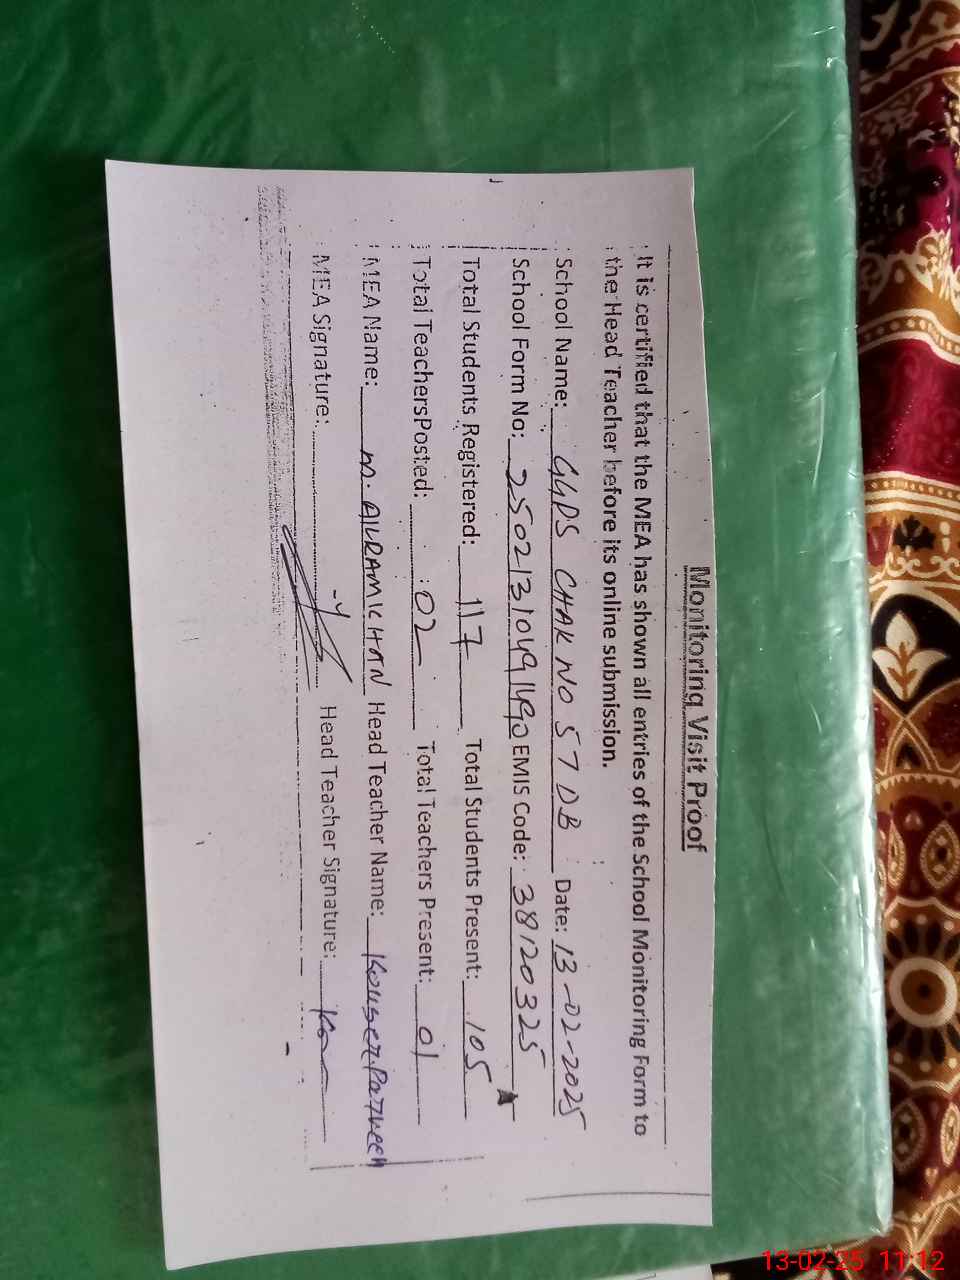 Monitoring Visit Proof
It is certified that the MEA has shown all entries of the School Monitoring Form to
the Head Teacher before its online submission.
School Name: GGPS CHAK NO 57 DB Date: 13-02-2025
School Form No: 2502131049190 EMIS Code: 38120325
Total Students Registered: 117 Total Students Present: 105
Total Teachers Posted: 02 Total Teachers Present: 01
MEA Name: M. AKRAM KHAN Head Teacher Name: Kouser Parveen
MEA Signature: Head Teacher Signature:
13-02-25 11:12